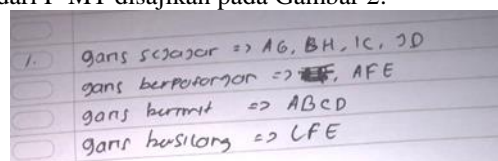 dari P-MT disajikan pada Gambar 2.
1. garis sejajar => AG, BH, IC, JD
garis berpotongan => AFE
garis bermit => ABCD
garis bersilang => CFE